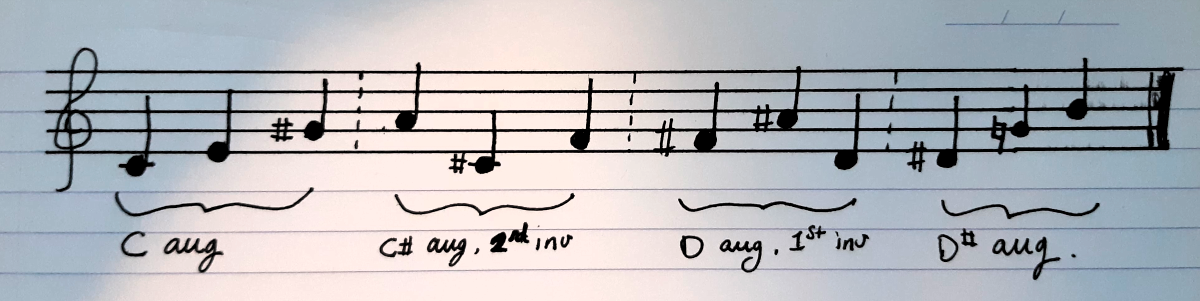 C aug C# aug. 2nd inv D aug. 1st inv D# aug.